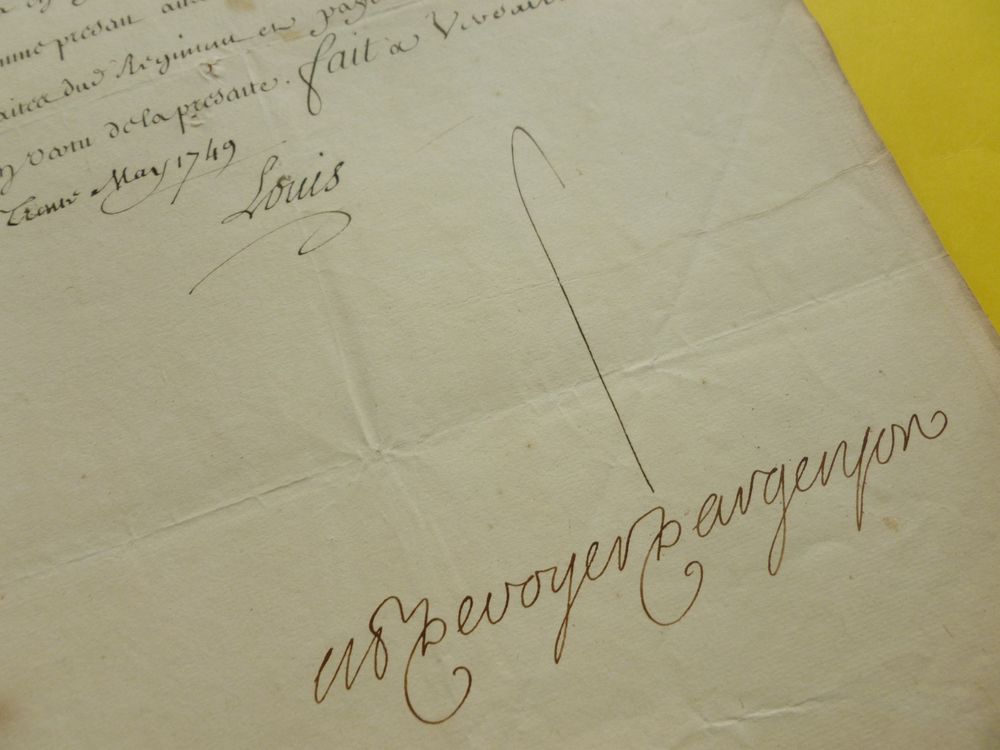 presant
du d Regiment et
vertu de la presante. fait a Versail
Trente May 1749
Louis
M P De voyer D argenson